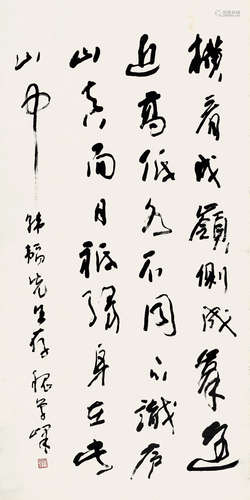 橫看成嶺側成峯遠
近高低各不同不識庐
山真面目祇緣身在此
山中
先生存